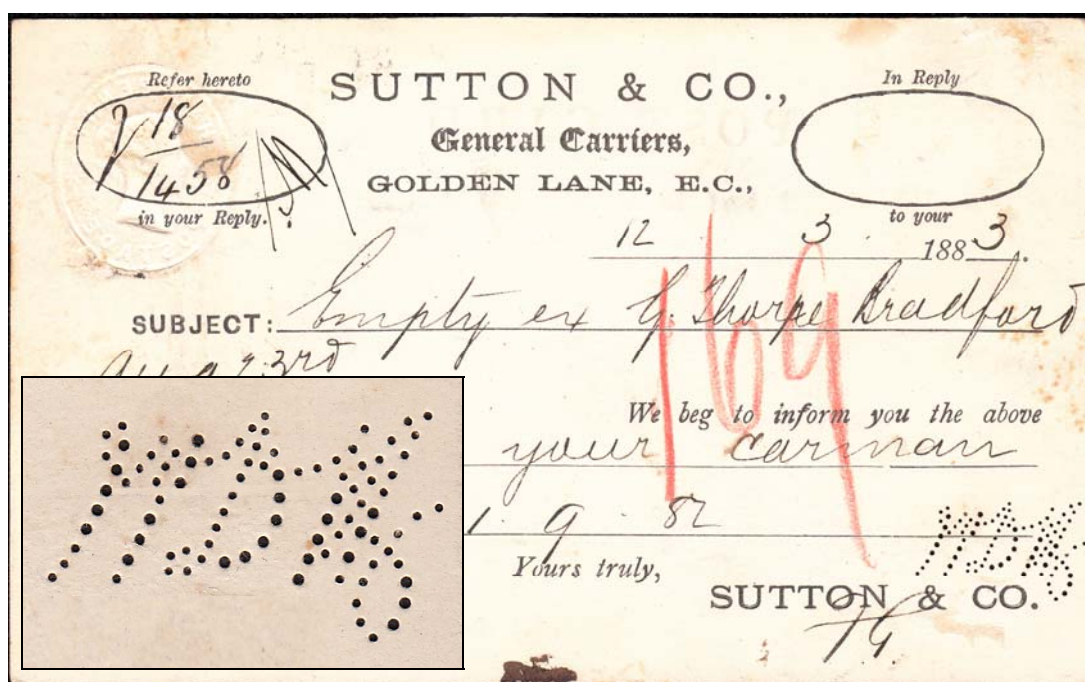 Refer hereto
SUTTON & CO.,
In Reply
18
1458
General Carriers,
GOLDEN LANE, E.C.,
in your Reply.
to your
12 3 1883.
SUBJECT: Empty ex G. Thorpe Bradford
Aug 23rd
169
We beg to inform you the above
your carman
1. 9. 82
Yours truly,
SUTTON & CO.